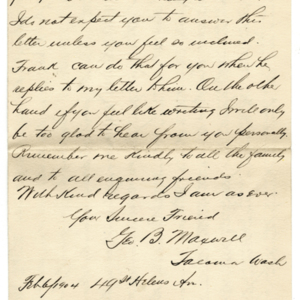 I do not expect you to answer this
letter unless you feel so inclined.
Frank can do that for you when he
replies to my letter to him. On the other
hand if you feel like writing I will only
be too glad to hear from you personally.
Remember me kindly to all the family
and to all enquiring friends.
With kind regards I am as ever
Your Sincere Friend
Geo. B. Maxwell
Tacoma Wash
St Helens Av.